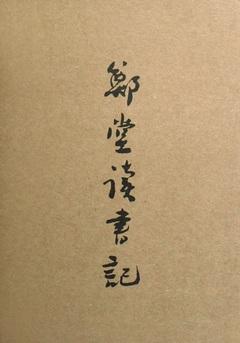 鄭堂讀書記